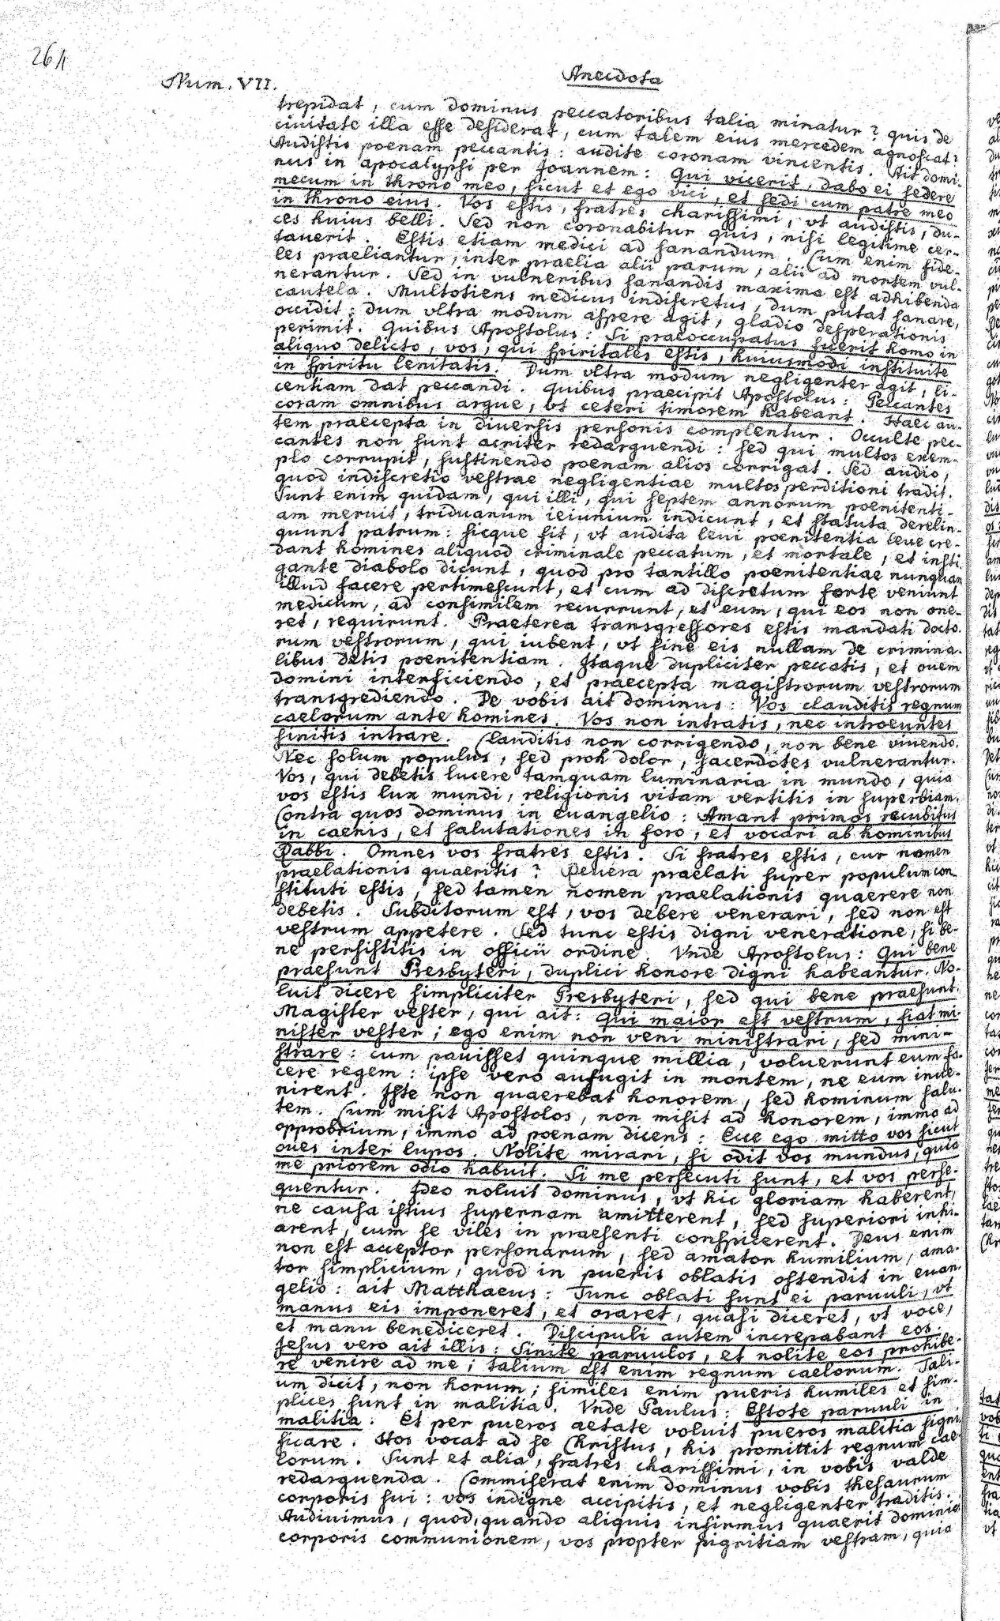 264
Num. VII.
Anecdota
trepidat, cum dominus peccatoribus talia minatur? quis de
ciuitate illa esse desiderat, cum talem eius mercedem agnoscat?
Audistis poenam peccantis: audite coronam vincentis. Ait domi-
nus in apocalypsi per Joannem: Qui vicerit, dabo ei sedere
mecum in throno meo, sicut et ego vici, et sedi cum patre meo
in throno eius. Vos estis, fratres charissimi, vt audistis, du-
ces huius belli. Sed non coronabitur quis, nisi legitime cer-
tauerit. Estis etiam medici ad sanandum. Cum enim fide-
les praeliantur, inter praelia alii parum, alii ad mortem vul-
nerantur. Sed in vulneribus sanandis maxima est adhibenda
cautela. Multotiens medicus indiscretus, dum putat sanare,
occidit: dum vltra modum aspere agit, gladio desperationis
perimit. Quibus Apostolus: Si praeoccupatus fuerit homo in
aliquo delicto, vos, qui spiritales estis, huiusmodi instituite
in spiritu lenitatis. Dum vltra modum negligenter agit, li-
centiam dat peccandi. Quibus praecipit Apostolus: Peccantes
coram omnibus argue, vt ceteri timorem habeant. Haec au-
tem praecepta in diuersis personis complentur. Occulte pec-
cantes non sunt acriter redarguendi: sed qui multos exem-
plo corrupit, sustinendo poenam alios corrigat. Sed audio,
quod indiscretio vestrae negligentiae multos perditioni tradit.
Sunt enim quidam, qui illi, qui septem annorum poenitenti-
am meruit, triduanum ieiunium indicunt, et statuta derelin-
quunt patrum: sicque fit, vt audita leui poenitentia leue cre-
dant homines aliquod criminale peccatum, et mortale, et insti-
gante diabolo dicunt, quod pro tantillo poenitentiae nunquam
illud facere pertimescunt, et cum ad discretum forte veniunt
medicum, ad consimilem recurrunt, et eum, qui eos non one-
ret, requirunt. Praeterea transgressores estis mandati docto-
rum vestrorum, qui iubent, vt sine eis nullam de crimina-
libus detis poenitentiam. Itaque dupliciter peccatis, et ouem
domini interficiendo, et praecepta magistrorum vestrorum
transgrediendo. De vobis ait dominus: Vos clauditis regnum
caelorum ante homines. Vos non intratis, nec introeuntes
sinitis intrare. Clauditis non corrigendo, non bene viuendo.
Nec solum populus, sed proh dolor, sacerdotes vulnerantur.
Vos, qui debetis lucere tamquam luminaria in mundo, quia
vos estis lux mundi, religionis vitam vertitis in superbiam.
Contra quos dominus in euangelio: Amant primos recubitus
in caenis, et salutationes in foro, et vocari ab hominibus
Rabbi. Omnes vos fratres estis. Si fratres estis, cur nomen
praelationis quaeritis? Reuera praelati super populum con-
stituti estis, sed tamen nomen praelationis quaerere non
debetis. Subditorum est, vos debere venerari, sed non est
vestrum appetere. Sed tunc estis digni veneratione, si be-
ne persistitis in officii ordine. Vnde Apostolus: Qui bene
praesunt Presbyteri, duplici honore digni habeantur. No-
luit dicere simpliciter Presbyteri, sed qui bene praesunt.
Magister vester, qui ait: Qui maior est vestrum, fiat mi-
nister vester; ego enim non veni ministrari, sed mini-
strare: cum pauisset quinque millia, voluerunt eum fa-
cere regem: ipse vero aufugit in montem, ne eum inue-
nirent. Iste non quaerebat honorem, sed hominum salu-
tem. Cum misit Apostolos, non misit ad honorem, immo ad
opprobrium, immo ad poenam dicens: Ecce ego mitto vos sicut
oues inter lupos. Nolite mirari, si odit vos mundus, quia
me priorem odio habuit. Si me persecuti sunt, et vos perse-
quentur. Ideo noluit dominus, vt hic gloriam haberent,
ne causa istius supernam amitterent, sed superiori inhi-
arent, cum se viles in praesenti conspicerent. Deus enim
non est acceptor personarum, sed amator humilium, ama-
tor simplicium, quod in pueris oblatis ostendit in euan-
gelio: ait Matthaeus: Tunc oblati sunt ei paruuli, vt
manus eis imponeret, et oraret, quasi diceret, vt voce,
et manu benediceret. Discipuli autem increpabant eos.
Jesus vero ait illis: Sinite paruulos, et nolite eos prohibe-
re venire ad me; talium est enim regnum caelorum. Tali-
um dicit, non horum; similes enim pueris humiles et sim-
plices sunt in malitia. Vnde Paulus: Estote paruuli in
malitia: Et per pueros aetate voluit pueros malitia signi-
ficare. Hos vocat ad se Christus, his promittit regnum cae-
lorum. Sunt et alia, fratres charissimi, in vobis valde
redarguenda. Commiserat enim dominus vobis thesaurum
corporis sui: vos indigne accipitis, et negligenter traditis.
Audiuimus, quod, quando aliquis infirmus quaerit dominici
corporis communionem, vos propter pigritiam vestram, quia